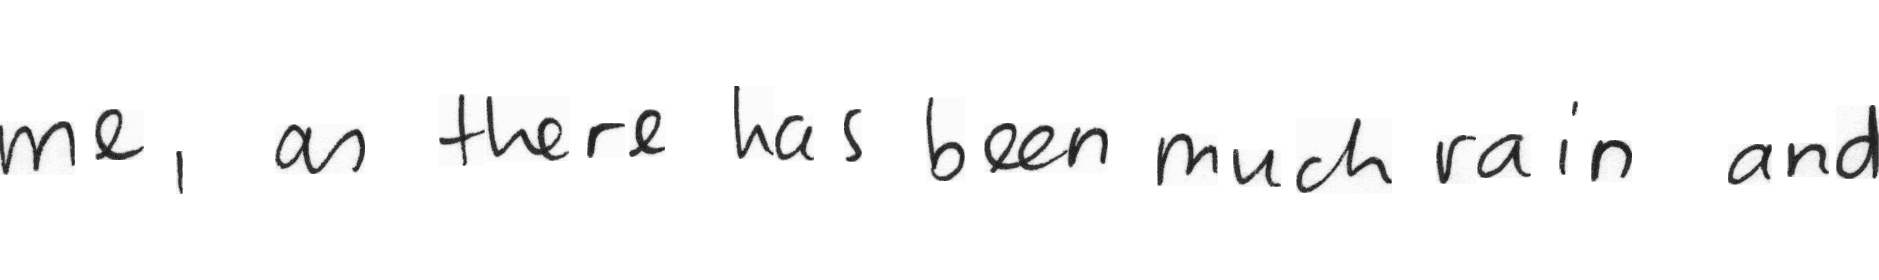 me, as there has been much rain and